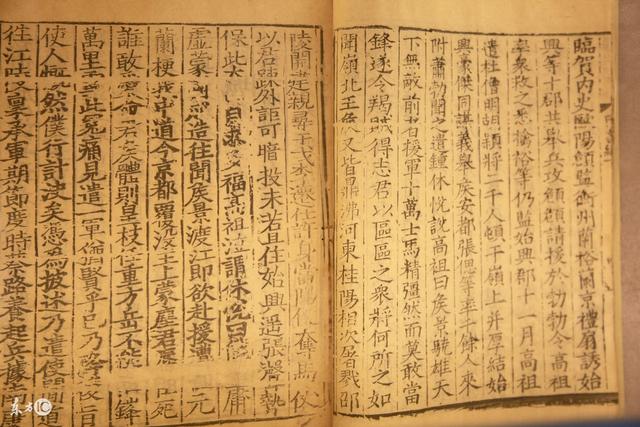 臨賀內史歐陽頠監衡州蘭裕蘭京禮扇誘始
興等十郡共舉兵攻頠頠請援於勃勃令高祖
率衆救之悉擒裕等仍監始興郡十一月高祖
遣杜僧明胡穎將二千人頓于嶺上并厚結始
興豪傑同謀義舉侯安都張偲等率千餘人來
附蕭勃聞之遣鍾休悅說高祖曰侯景驍雄天
下無敵前者援軍十萬士馬精彊然而莫敢當
鋒遂令羯賊得志君以區區之衆將何所之如
聞嶺北王侯又皆鼎沸河東桂陽相次屠戮邵
陵開建親尋干戈李遷仕許身當陽便奪馬仗
以君疎外詎可暗投未若且住始興遙張聲勢
保此太山自求多福高祖泣謂休悅曰僕本庸
虛蒙國成造往聞侯景渡江即欲赴援遭值元
蘭梗我中道今京都覆沒主上蒙塵君辱臣死
誰敢愛命君侯體則皇枝任重方岳不能摧鋒
萬里雪此冤痛見遣一軍猶賢乎已乃降後旨
使人慨然僕行計決矣憑為披述乃遣使間道
往江陵稟承軍期節度時蔡路養起兵據南
東方IC